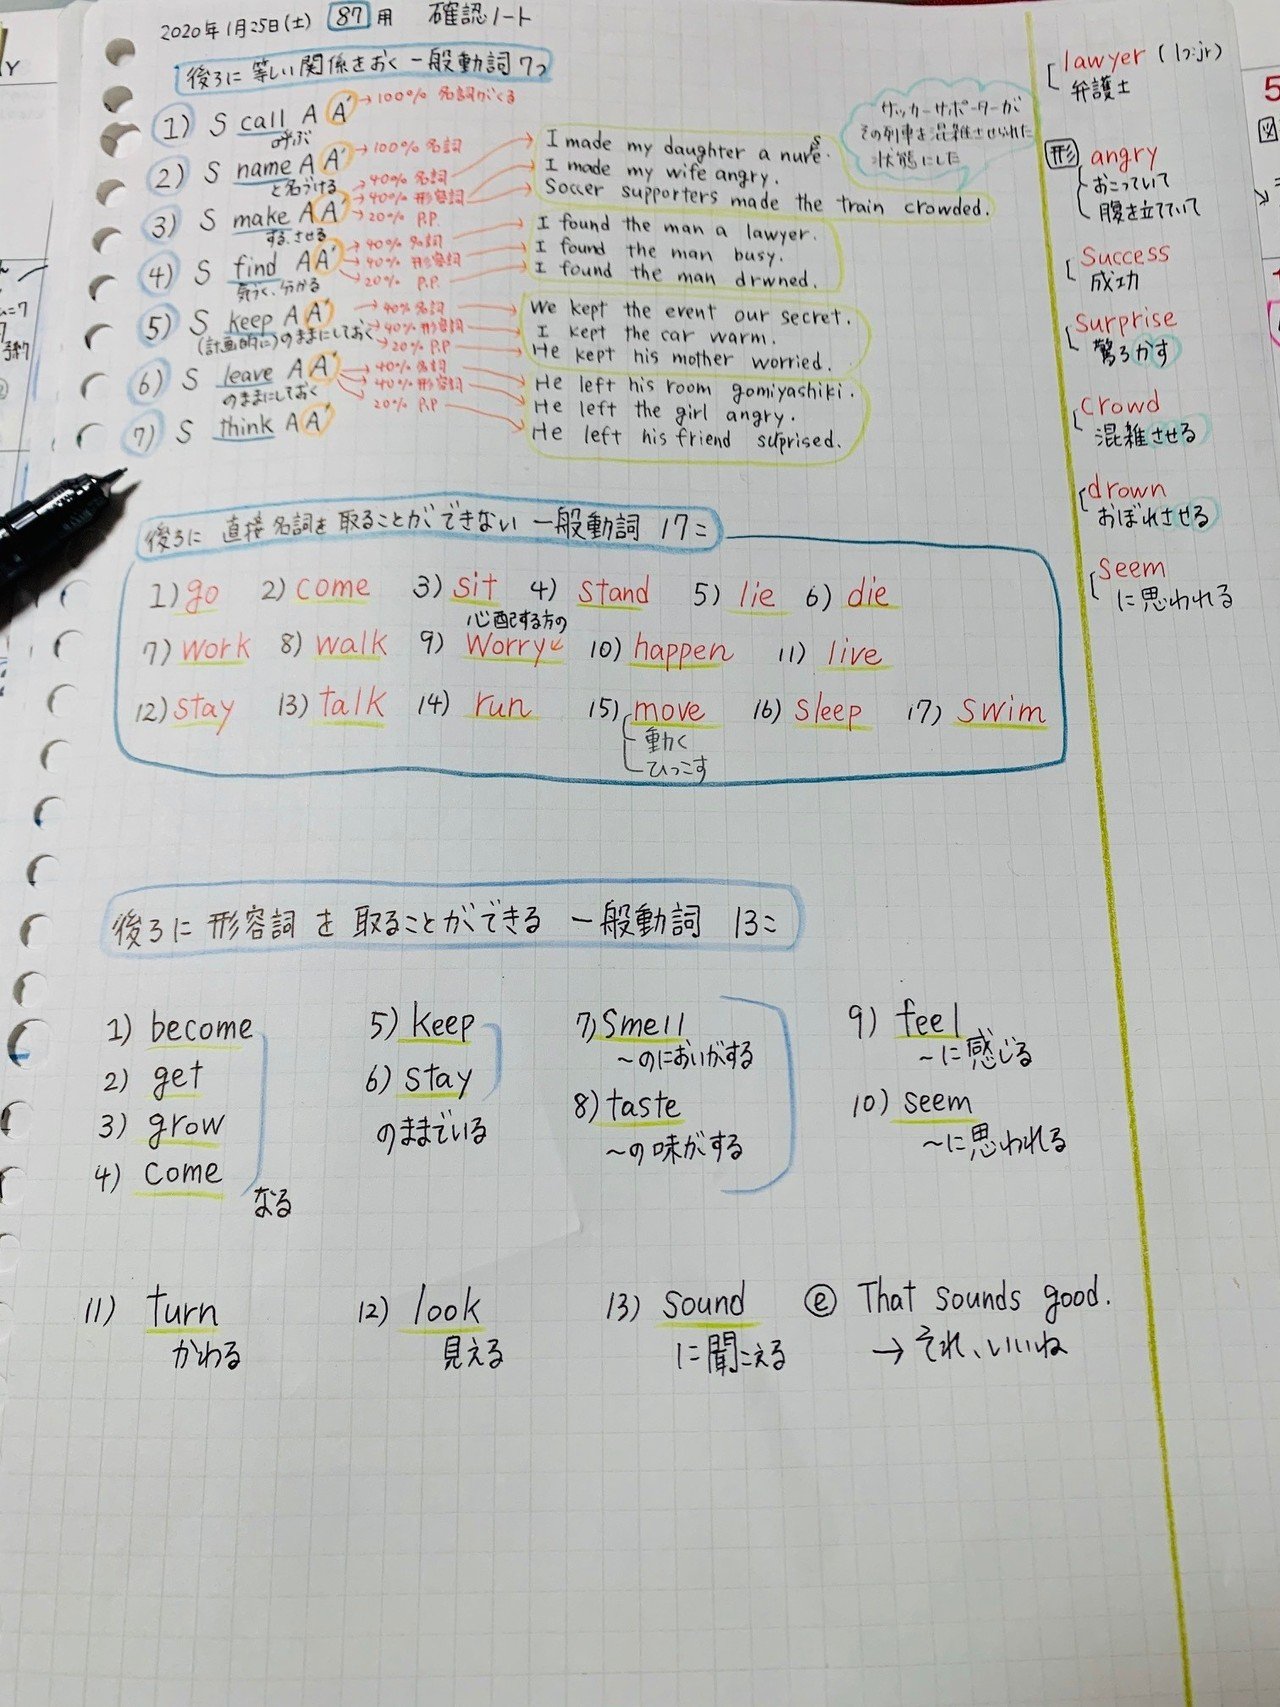 2020年1月25日(土) 87用 確認ノート
後ろに等しい関係をおく一般動詞7つ
1) S call A A' → 100% 名詞がくる
呼ぶ
2) S name A A' → 100% 名詞
と名づける
3) S make A A' → 40% 名詞
→ 40% 形容詞
→ 20% P.P.
する、させる
I made my daughter a nurse.
I made my wife angry.
Soccer supporters made the train crowded.
サッカーサポーターが
その列車を混雑させられた
状態にした
4) S find A A' → 40% 名詞
→ 40% 形容詞
→ 20% P.P
気づく、分かる
I found the man a lawyer.
I found the man busy.
I found the man drwned.
5) S keep A A' → 40% 名詞
→ 40% 形容詞
→ 20% P.P
(計画的に)のままにしておく
We kept the event our secret.
I kept the car warm.
He kept his mother worried.
6) S leave A A' → 40% 名詞
→ 40% 形容詞
20% P.P
のままにしておく
He left his room gomiyashiki.
He left the girl angry.
He left his friend suprised.
7) S think A A'
後ろに 直接名詞を取ることができない 一般動詞 17こ
1) go 2) come 3) sit 4) stand 5) lie 6) die
心配する方の
7) work 8) walk 9) worry 10) happen 11) live
12) stay 13) talk 14) run 15) move 16) sleep 17) swim
動く
ひっこす
後ろに 形容詞 を 取ることができる 一般動詞 13こ
1) become
2) get
3) grow
4) come
なる
5) keep
6) stay
のままでいる
7) smell
〜のにおいがする
8) taste
〜の味がする
9) feel
〜に感じる
10) seem
〜に思われる
11) turn
かわる
12) look
見える
13) sound
に聞こえる
e That sounds good.
→ それ、いいね
lawyer (lɔ:jr)
弁護士
形 angry
おこっていて
腹を立てていて
success
成功
surprise
驚ろかす
crowd
混雑させる
drown
おぼれさせる
seem
に思われる